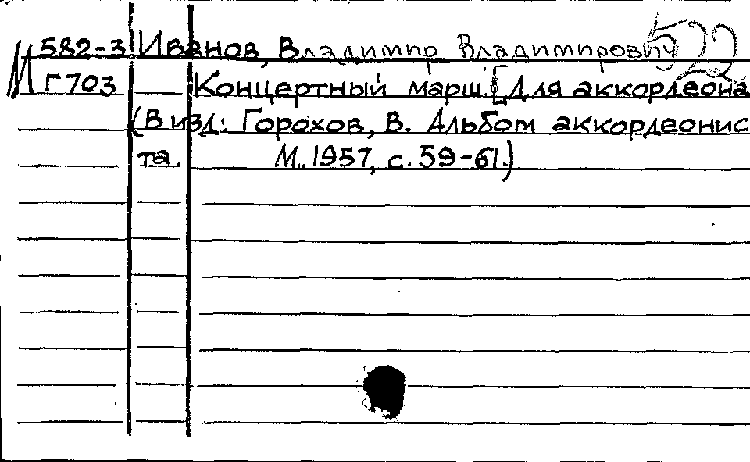 522
М 582-3 Иванов, Владимир Владимирович
Г703 Концертный марш. [Для аккордеона
(В изд: Горохов, В. Альбом аккордеонис
та. М., 1957, с. 59-61.)